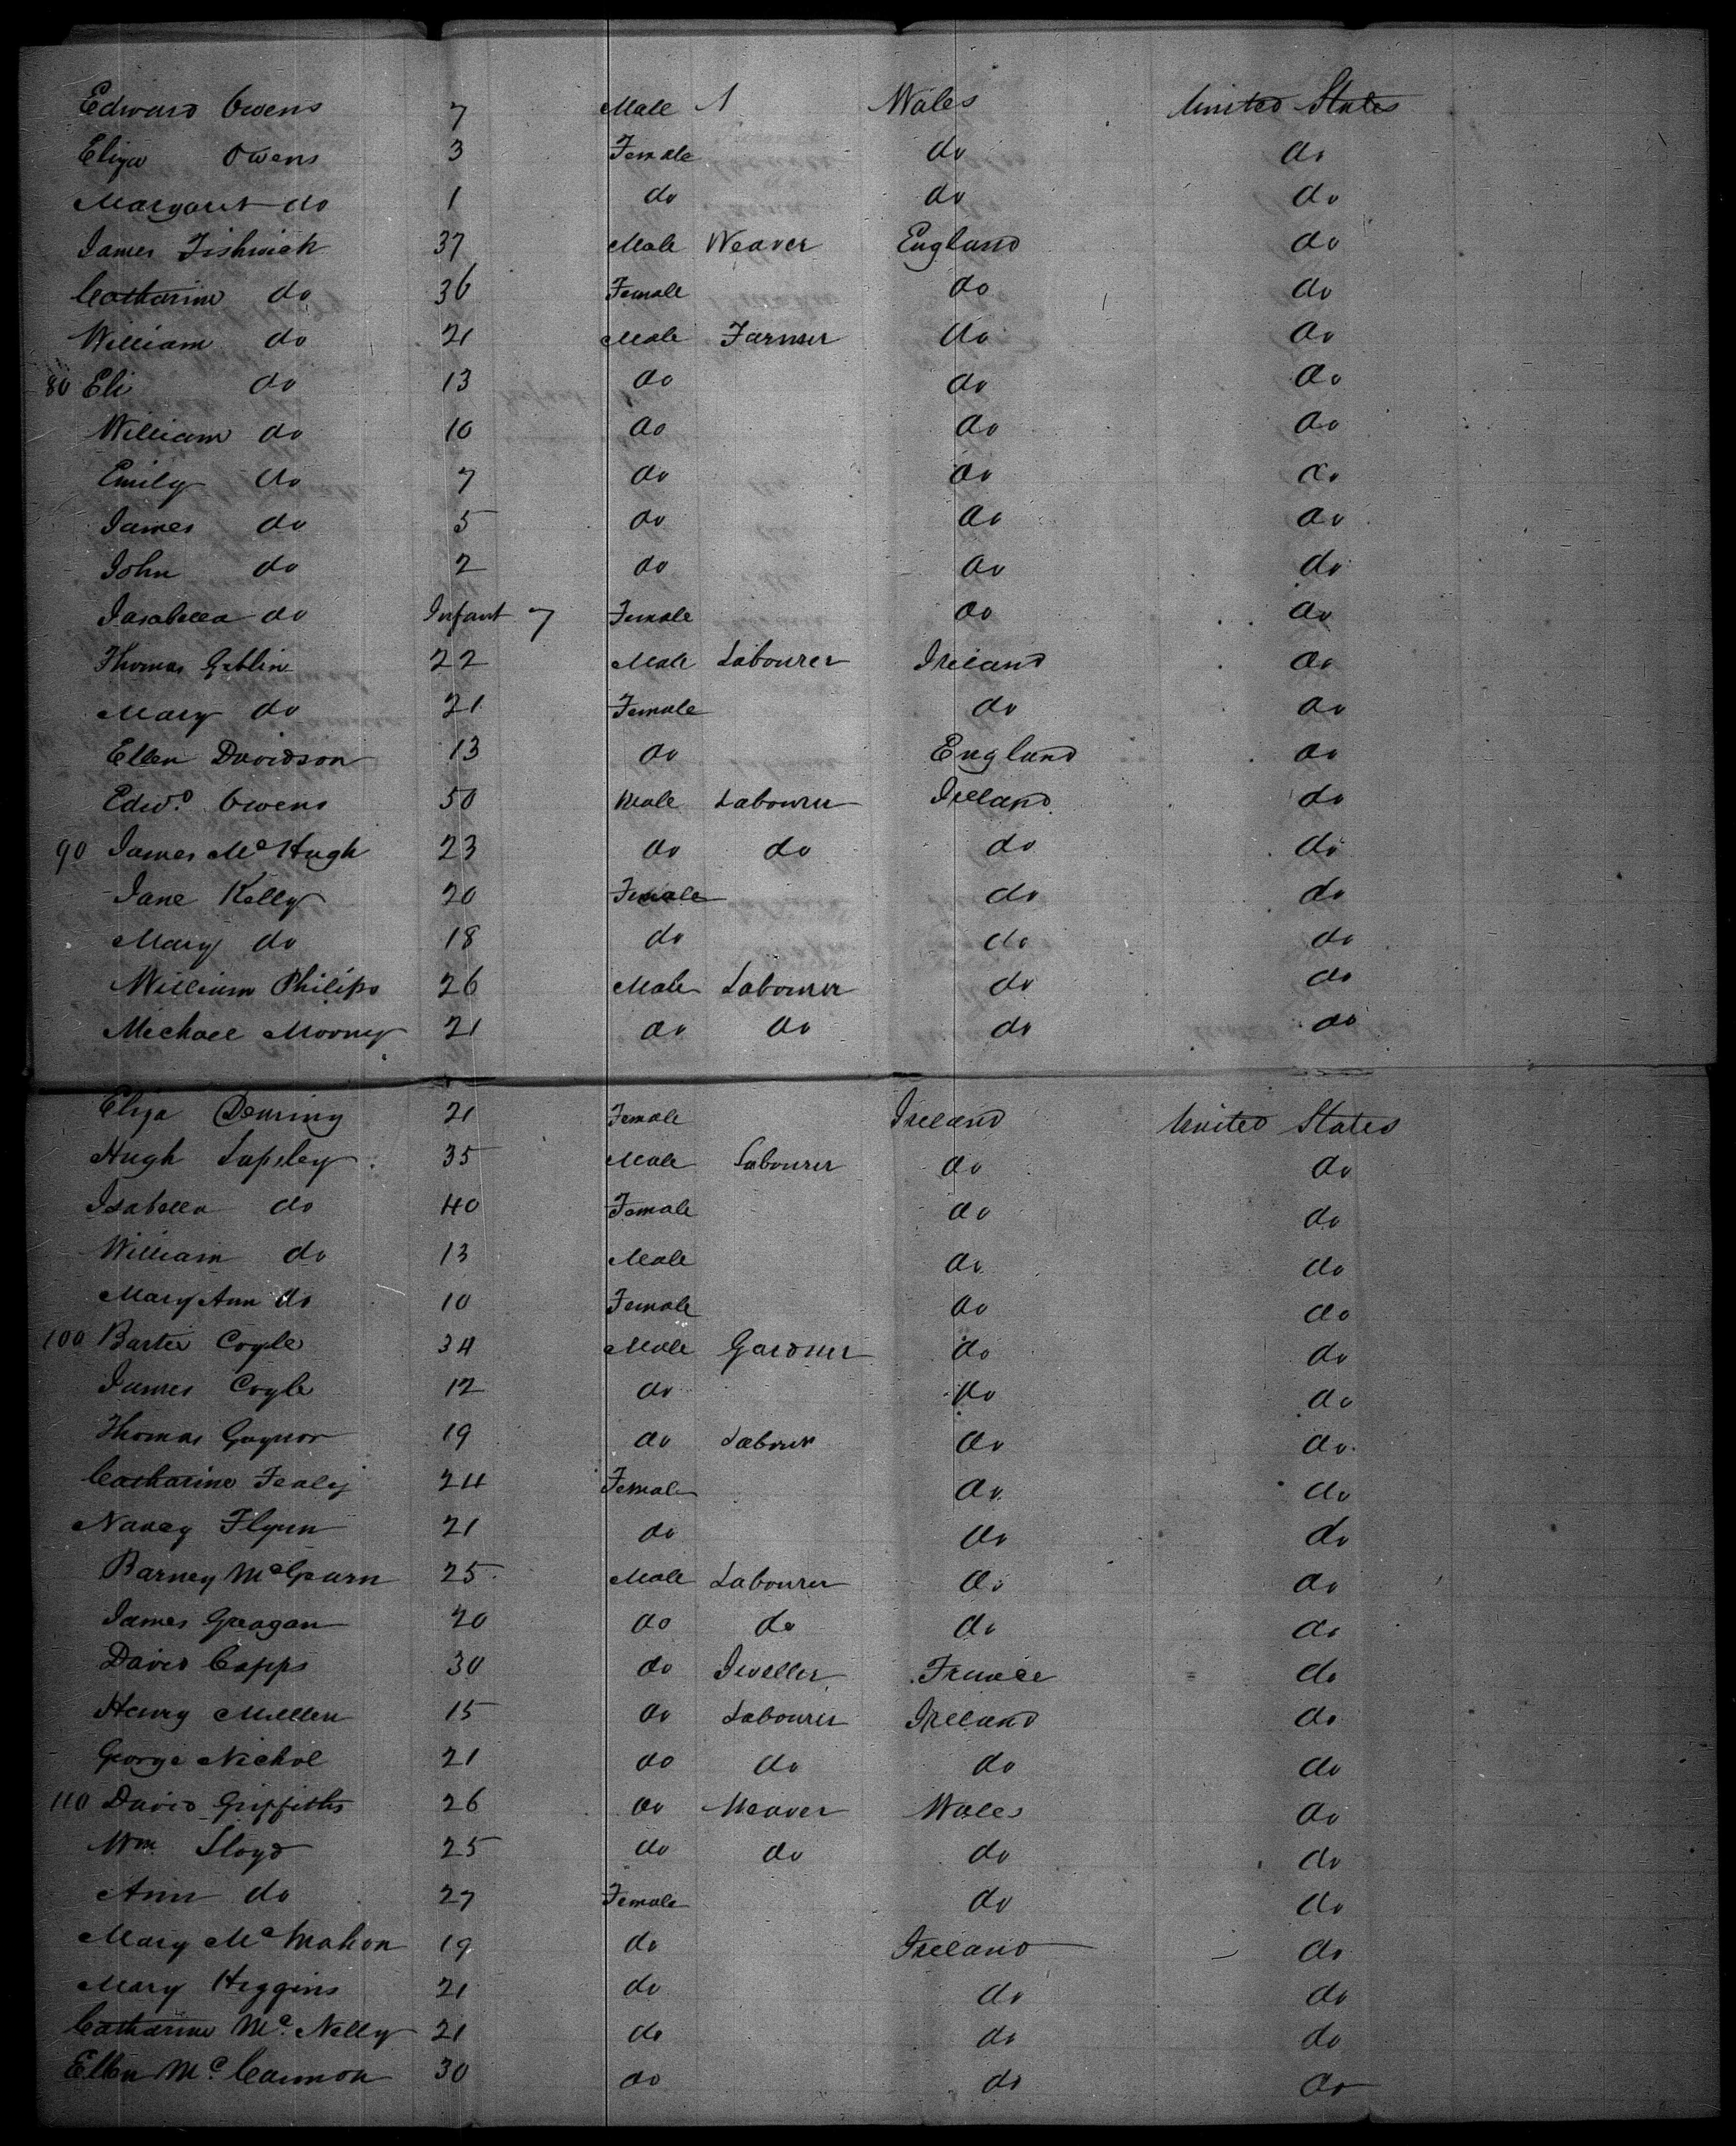 Edward Owens 7 Male Wales United States
Eliza Owens 3 Female do do
Margaret do 1 do do do
James Fishwick 37 Male Weaver England do
Catharine do 36 Female do do
William do 21 Male Farmer do do
80 Eli do 13 do do do
William do 10 do do do
Emily do 7 do do do
James do 5 do do do
John do 2 do do do
Isabella do Infant 7 Female do do
Thomas Geblin 22 Male Labourer Ireland do
Mary do 21 Female do do
Ellen Davidson 13 do England do
Edwd. Owens 50 Male Labourer Ireland do
90 James McHugh 23 do do do do
Jane Kelly 20 Female do do
Mary do 18 do do do
William Philips 26 Male Labourer do do
Michael Mooney 21 do do do do
Eliza 21 Female Ireland United States
Hugh Lapsley 35 Male Labourer do do
Isabella do 40 Female do do
William do 13 Male do do
Mary Ann do 10 Female do do
100 Coyle 34 Male Gardner do do
James Coyle 12 do do do
Thomas Gaynor 19 do Labourer do do
Catharine Fealy 24 Female do do
Nancy Flynn 21 do do do
Barney McGourn 25 Male Labourer do do
James Greagan 20 do do do do
David Capps 30 do Jweller France do
Henry Millen 15 do Labourer Ireland do
George Nichol 21 do do do do
110 David Griffiths 26 do Weaver Wales do
Wm. Lloyd 25 do do do do
Ann do 27 Female do do
Mary McMahon 19 do Ireland do
Mary Higgins 21 do do do
Catharine Mc. Nelly 21 do do do
Ellen Mc. Cannon 30 do do do